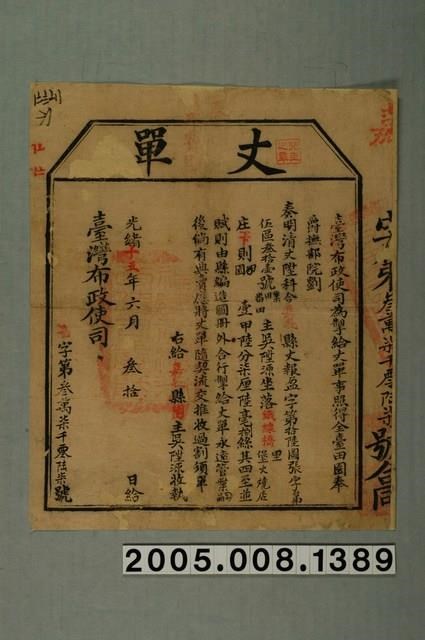 丈單
臺灣布政使司為掣給丈單事照得全臺田園奉
爵撫部院劉
奏明清丈陞科合 縣丈報盈字第拾陸圖張字第
伍區叁拾壹號 主吳陞源坐落鐵線橋里堡火燒店
庄下則園 壹甲陸分柒厘陸毫 絲其四至並
賦則由縣編造圖冊外合行掣給丈單永遠管業
後倘有典賣應將丈單隨契流交推收過割須單
右給 縣 主吳陞源收執
光緒十五年六月 叁拾 日給
臺灣布政使司
字第叁萬柒千零陸柒號
字第叁萬柒千零陸柒號合同
2005.008.1389